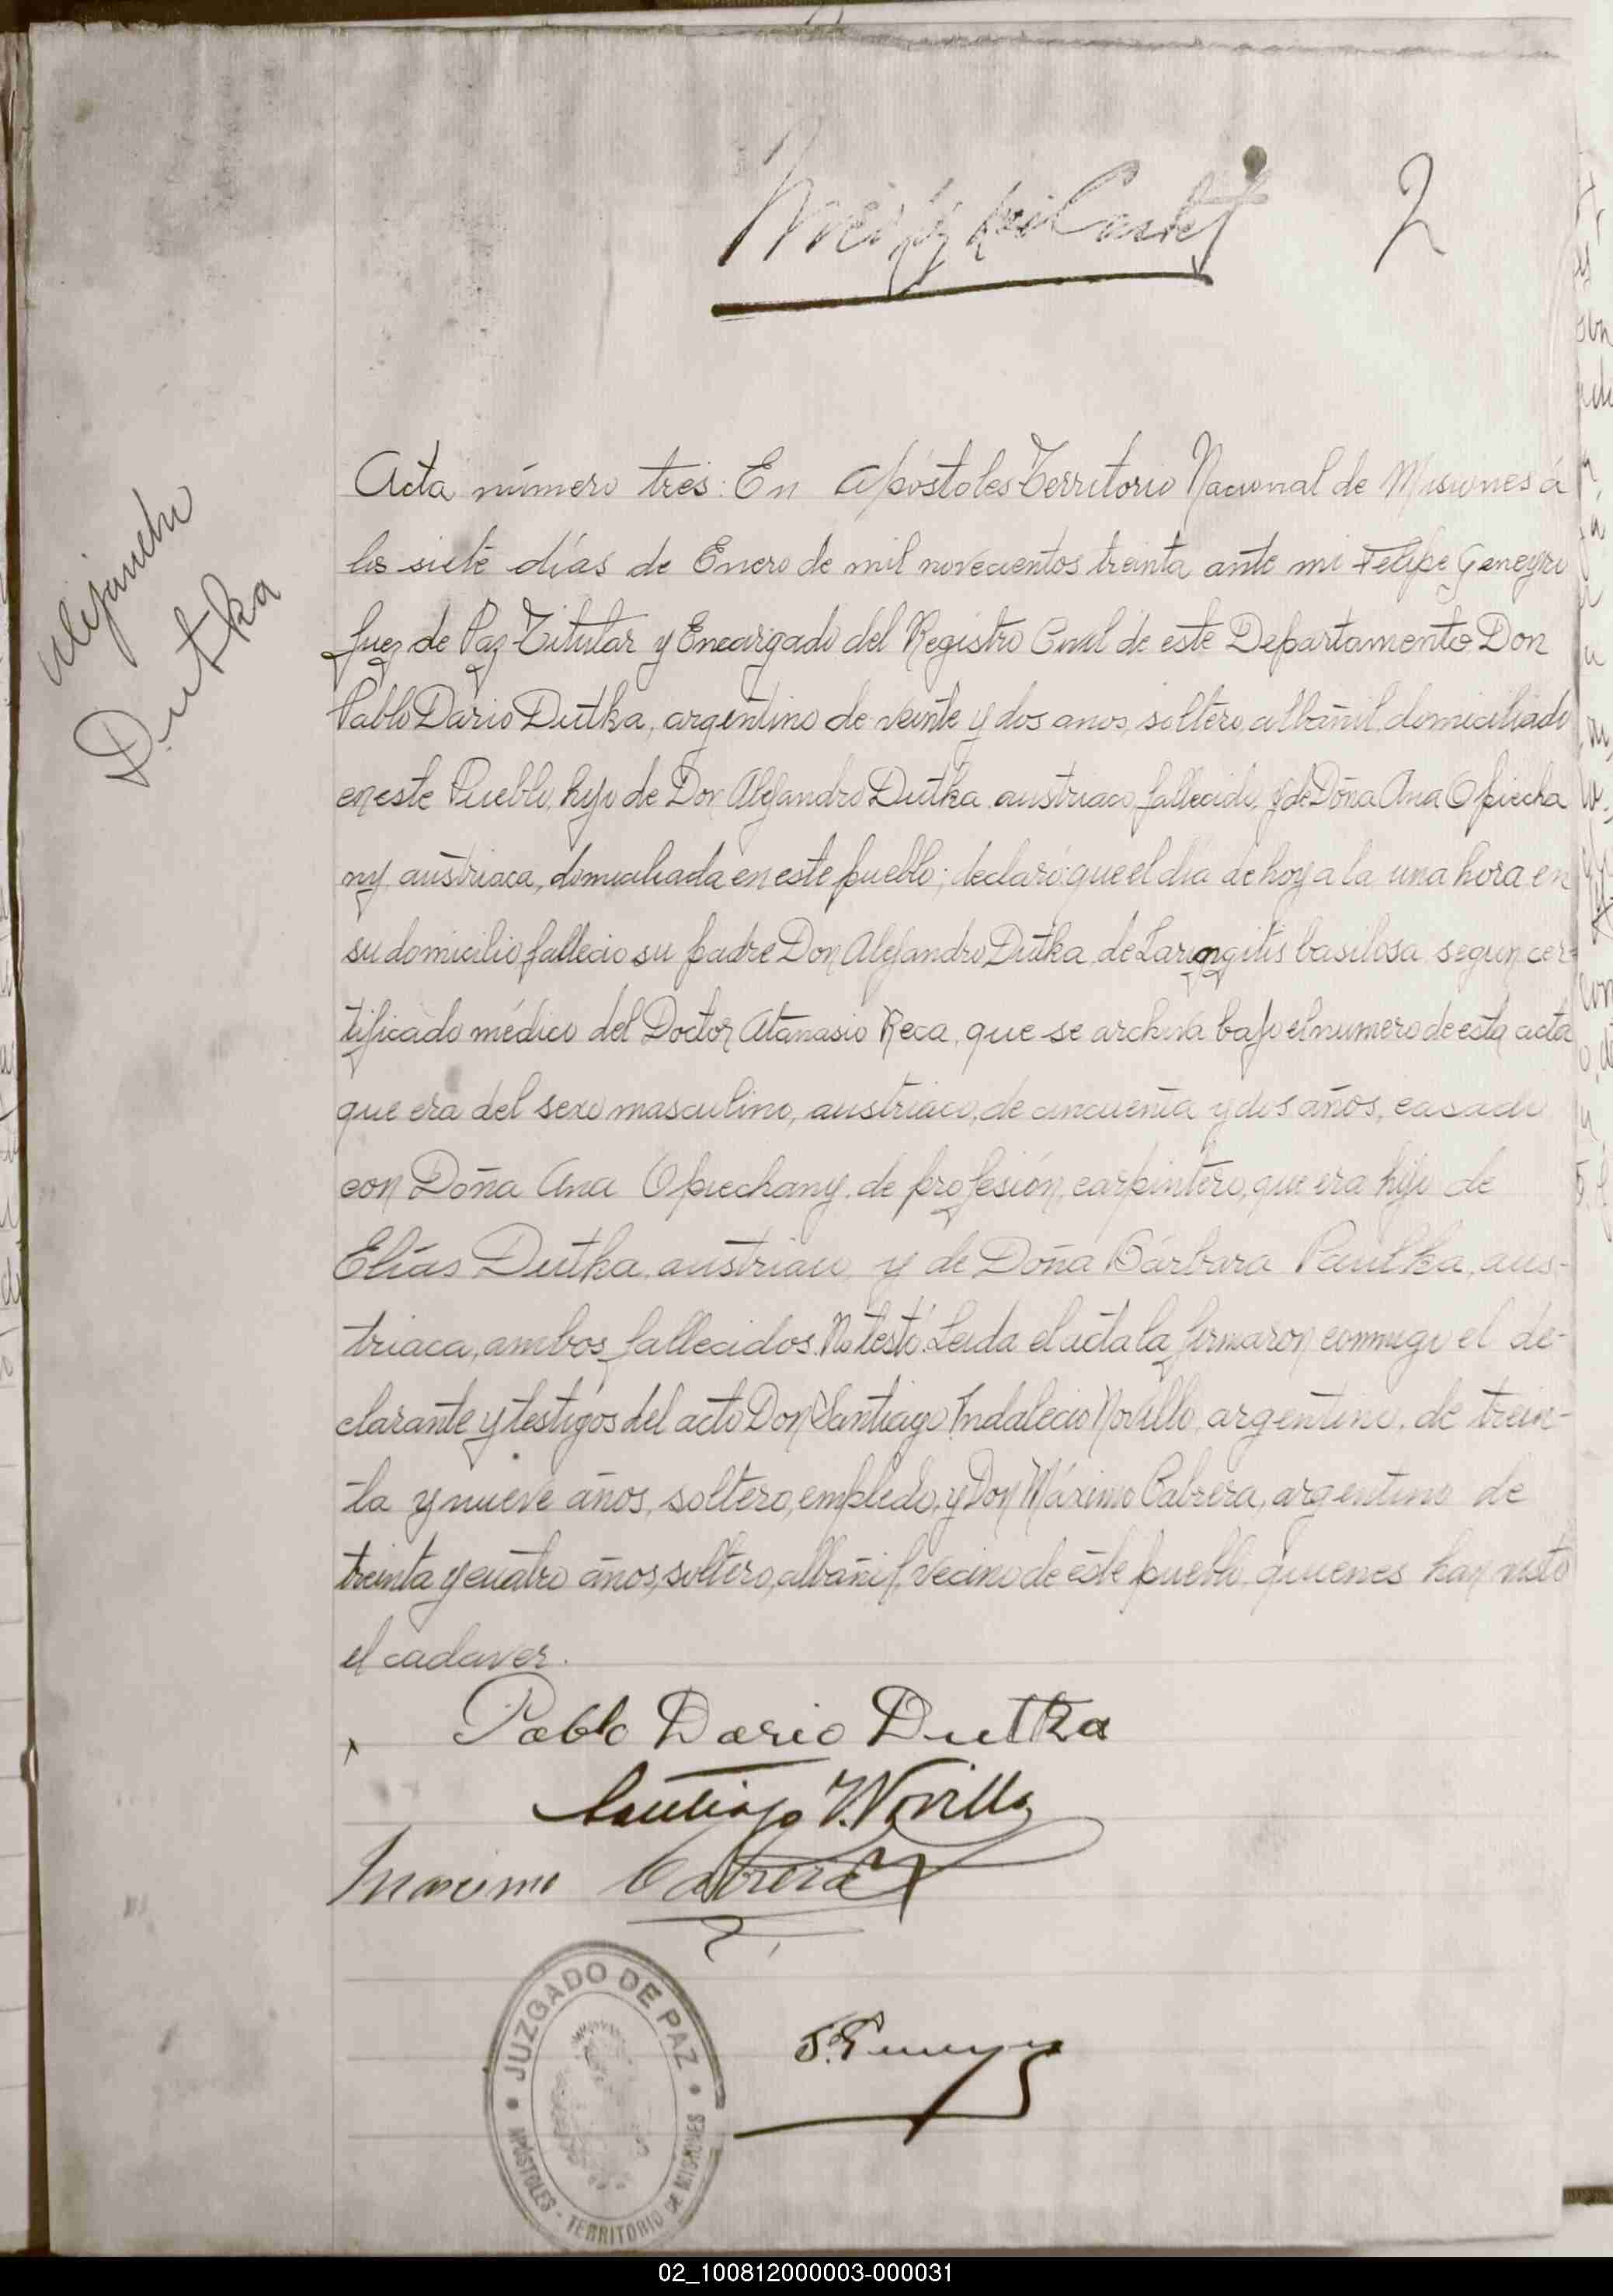 2
Alejandro
Dutka
Acta número tres: En Apóstoles Territorio Nacional de Misiones á
los siete días de Enero de mil novecientos treinta ante mi Felipe Geneyro
Juez de Paz Titular y Encargado del Registro Civil de este Departamento Don
Pablo Dario Dutka, argentino de veinte y dos anos, soltero, albañil, domiciliado
en este Pueblo, hijo de Don Alejandro Dutka, austriaco, fallecido, y de Doña Ana Opiecha
ny, austriaca, domiciliada en este pueblo; declaró: que el día de hoy a la una hora, en
su domicilio, fallecio su padre Don Alejandro Dutka, de Laringitis basilosa, segun cer-
tificado médico del Doctor Atanasio Reca, que se archiva bajo el numero de esta acta
que era del sexo masculino, austriaco, de cincuenta y dos años, casado
con Doña Ana Opiechany, de profesión, carpintero, que era hijo de
Elías Dutka, austriaco, y de Doña Bárbara Paulka, aus-
triaca, ambos fallecidos. No testó. Leida el acta la firmaron conmigo el de-
clarante y testigos del acto Don Santiago Indalecio Novillo, argentino, de trein-
ta y nueve años, soltero, empledo, y Don Máximo Cabrera, argentino de
treinta y cuatro años, soltero, albañil, vecino de este pueblo, quienes han visto
el cadaver.
Pablo Dario Dutka
Santiago I. Novillo
Maximo Cabrera
JUZGADO DE PAZ
APÓSTOLES - TERRITORIO DE MISIONES
02_100812000003-000031